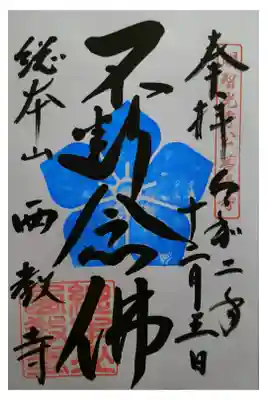 奉拝
令和二年
十二月三日
不断念佛
総本山
西教寺